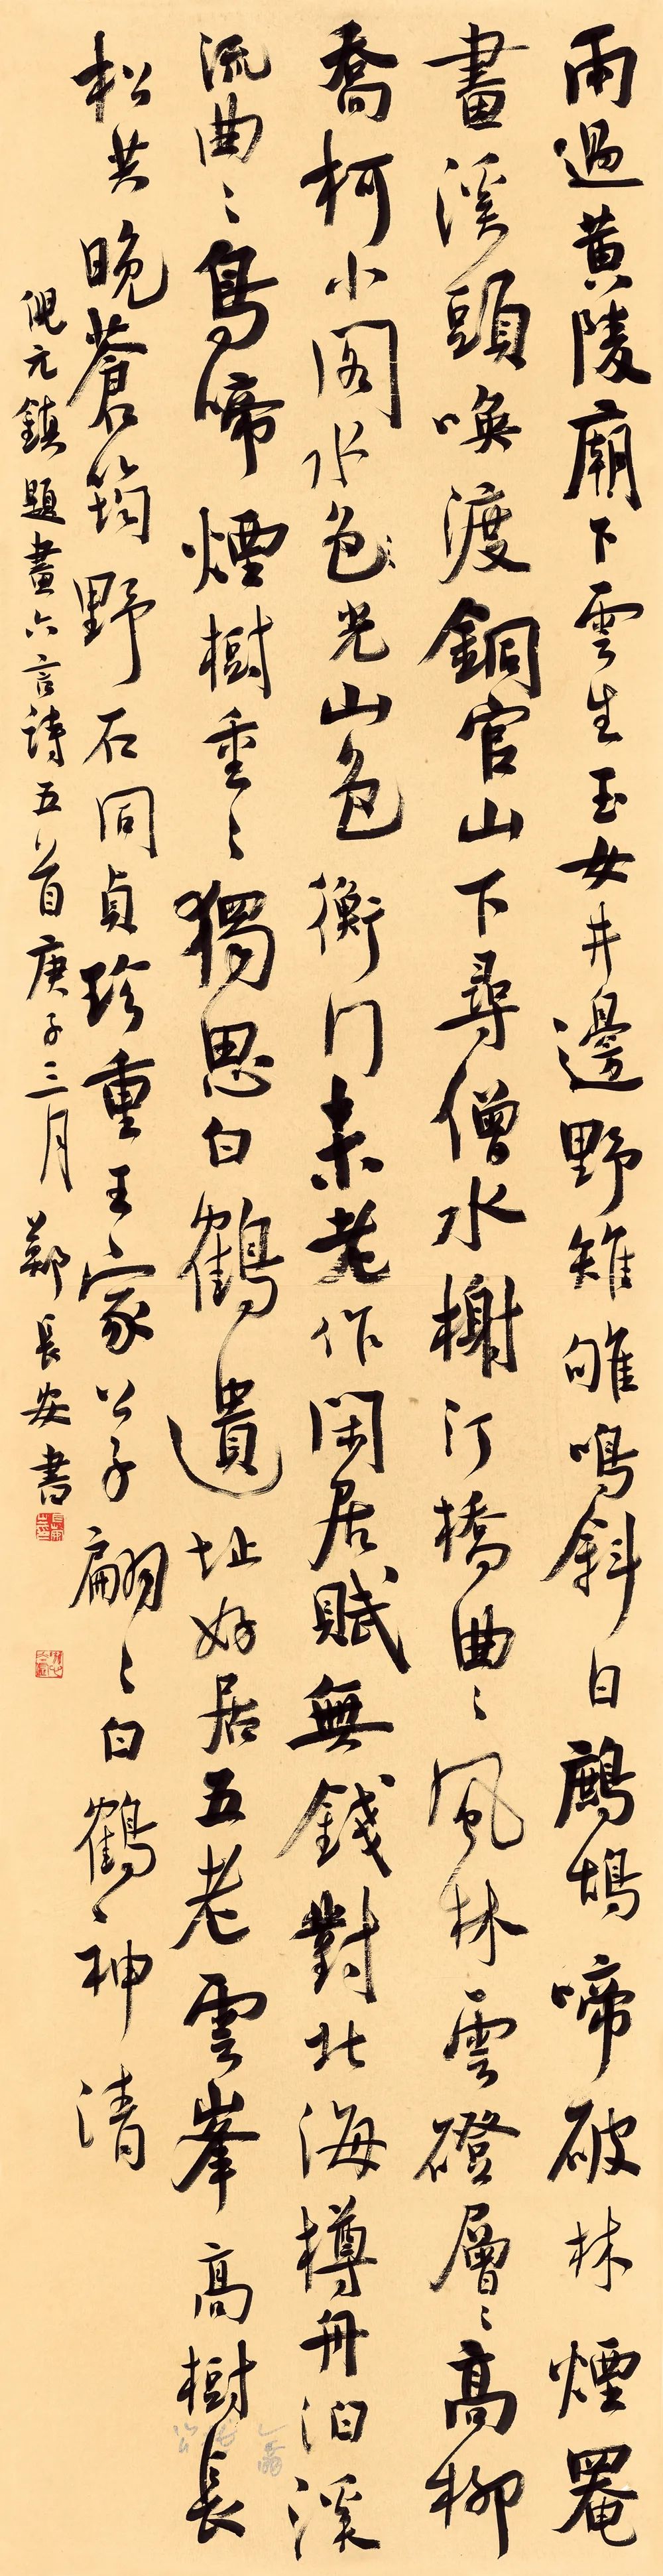 雨過黃陵廟下雲生玉女井邊野雉雊鳴斜日鷓鴣啼破林煙罨
畫溪頭喚渡銅官山下尋僧水榭汀橋曲〻風林雲磴層〻高柳
喬柯小閣水色光山色衡门素老作閑居賦無錢對北海樽舟泊溪
流曲〻鳥啼煙樹重〻獨思白鶴遺址好居五老雲峯高樹長
松共晚蒼筠野石同貞珍重王家公子翩〻白鶴神清
倪元鎮題畫六言詩五首庚子三月鄭長安書